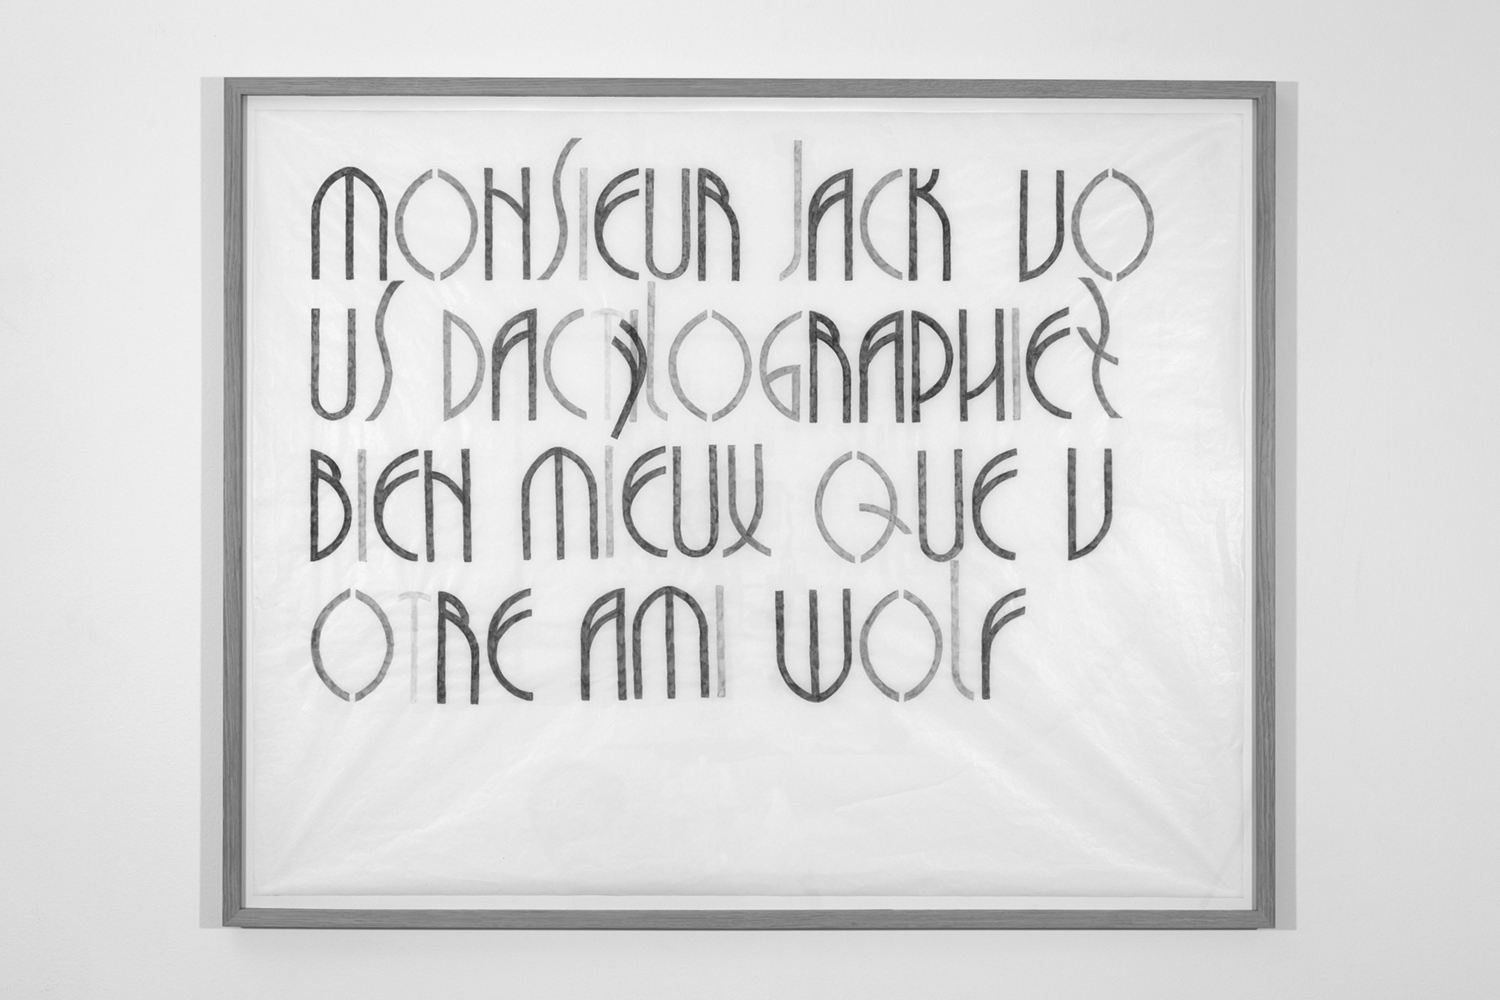 MONSIEUR JACK VO
US DACTYLOGRAPHIEZ
BIEN MIEUX QUE V
OTRE AMI WOLF